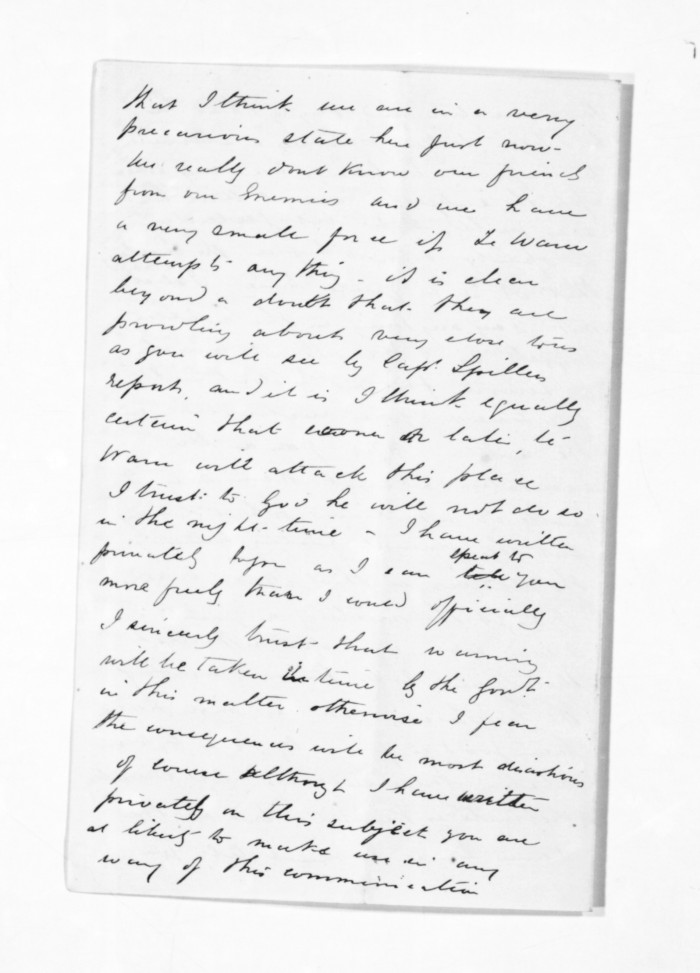 that I think we are in a very
precarious state here just now -
We really dont know our friends
from our Enemies and we have
a very small force if Te Waru
attempts anything - it is clear
beyond a doubt that they are
prowling about very close to us
as you will see by Capt. Spillers
report, and it is I think equally
certain that sooner or later, Te
Waru will attack this place
I trust to God he will not do so
in the night-time - I have written
privately to you as I can speak to you
more freely than I could officially
I sincerely trust that warning
will be taken in time by the Govt.
in this matter otherwise I fear
the consequences will be most disastrous
of course although I have written
privately on this subject you are
at liberty to make use in any
way of this communication